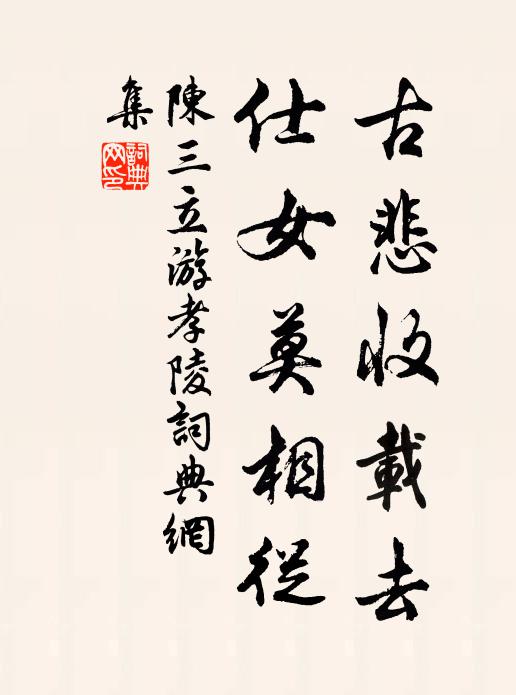 古悲收載去
仕女莫相從
陳三立游孝陵詞典網
集
詞典網印